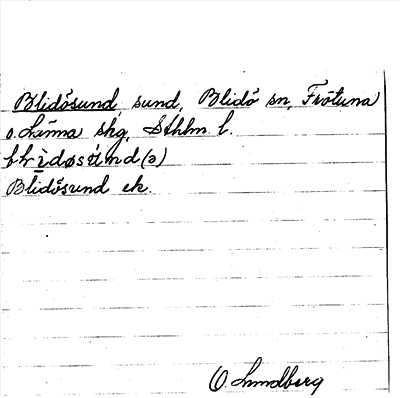 Blidösund sund, Blidö sn, Frötuna
o. Länna skg, Sthlm l.
blìdøsún̄d(ə)
Blidösund ek.
O. Lundberg